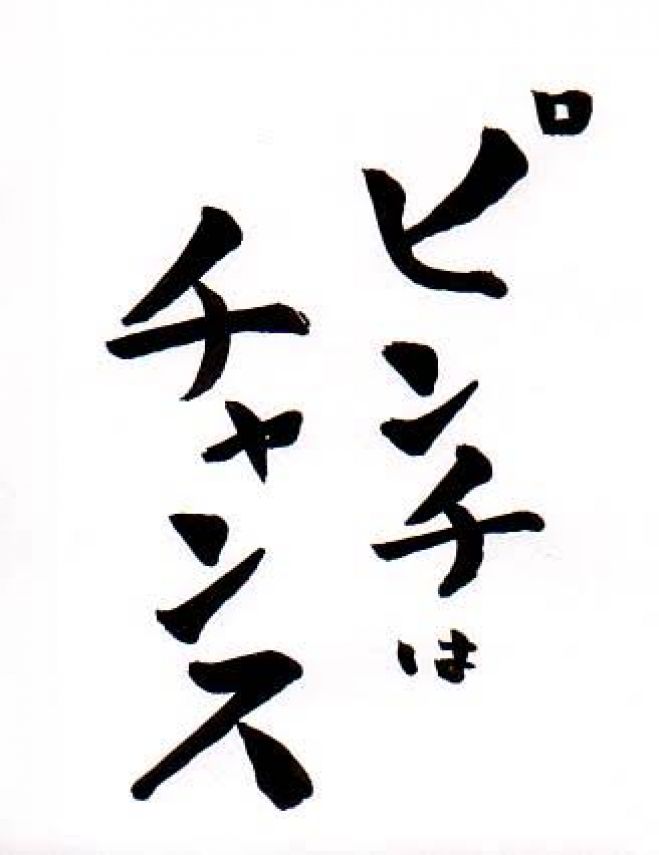 ピンチは
チャンス